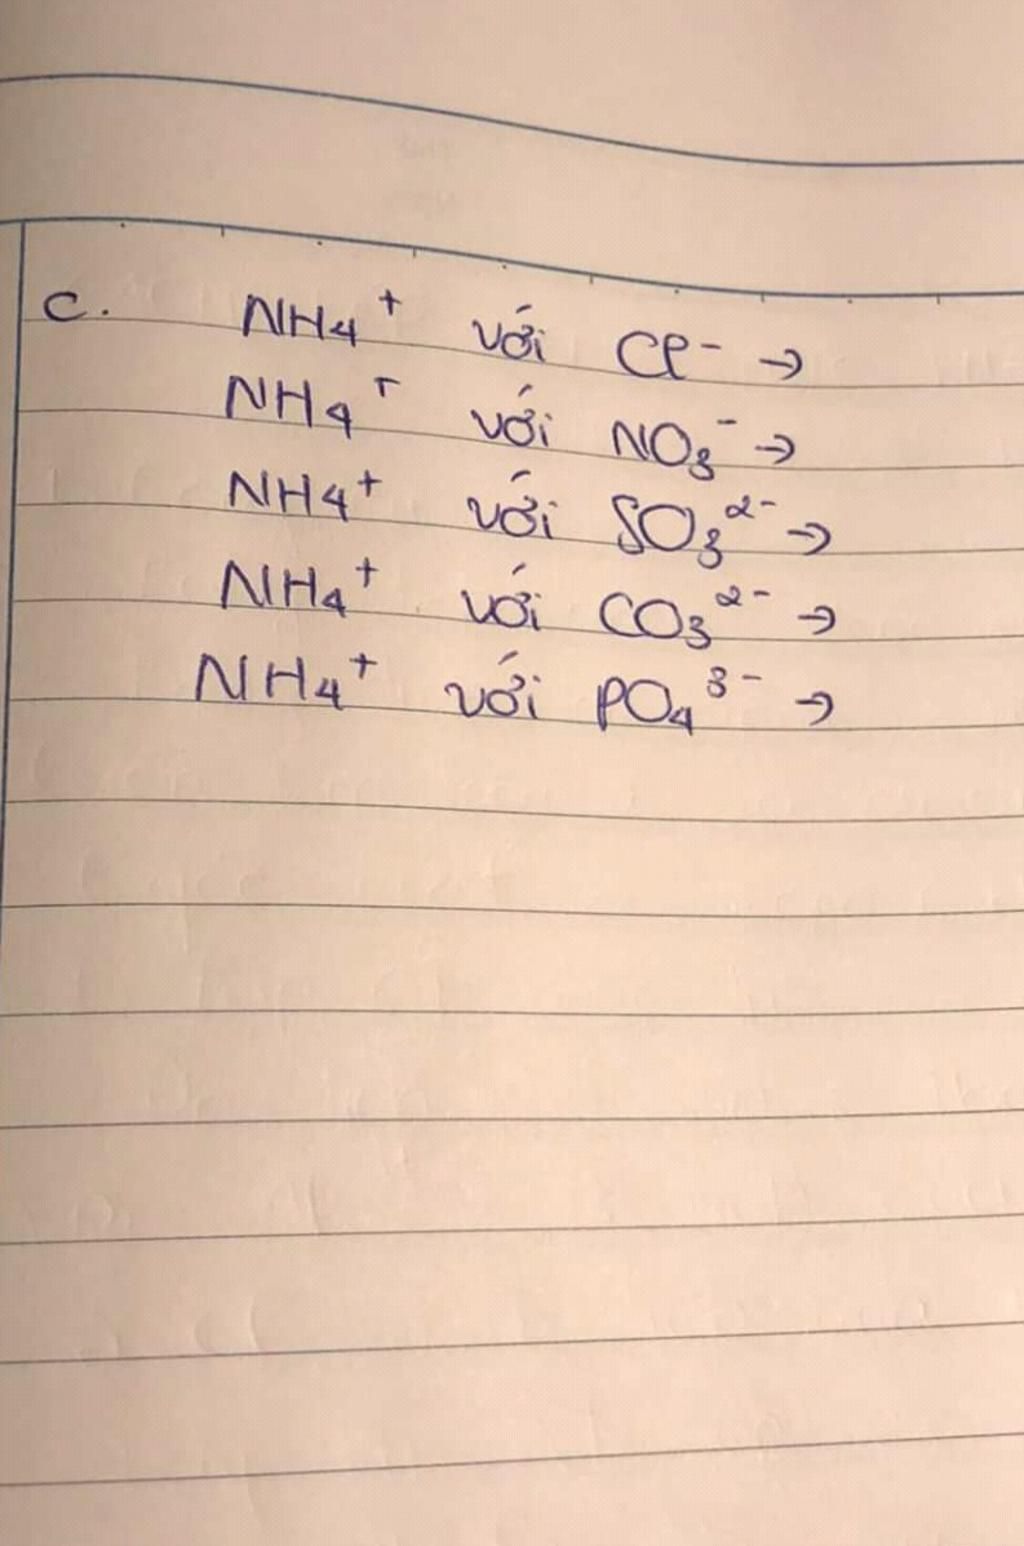 c. NH₄⁺ với Cl⁻ →
NH₄⁺ với NO₃⁻ →
NH₄⁺ với SO₃²⁻ →
NH₄⁺ với CO₃²⁻ →
NH₄⁺ với PO₄³⁻ →